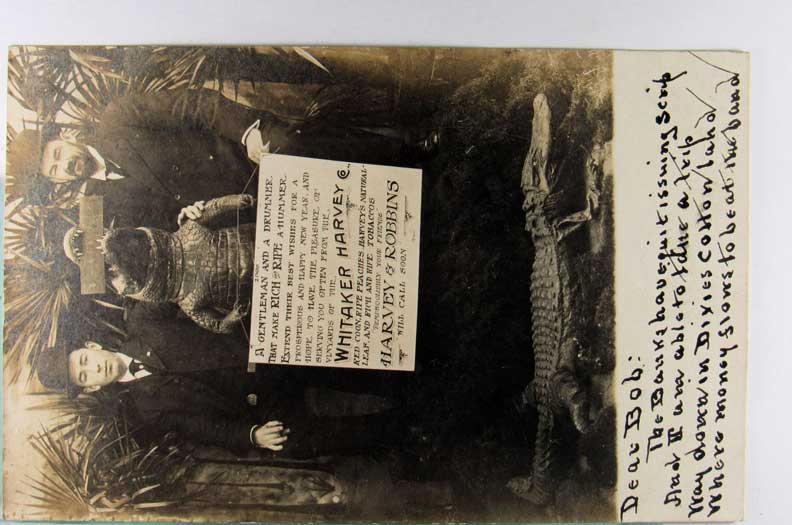 A GENTLEMAN AND A DRUMMER.
THAT MAKE RICH AND RIPE A HUMMER.
EXTEND THEIR BEST WISHES FOR A
PROSPEROUS AND HAPPY NEW YEAR, AND
HOPE TO HAVE THE PLEASURE OF
SERVING YOU OFTEN FROM THE
VINYARDS OF THE
WHITAKER HARVEY CO.
RED COON, RIPE PEACHES, HARVEY'S NATURAL-
LEAF, AND RICH AND RIPE TOBACCOS
YOUR FRIENDS
HARVEY & ROBBINS
WILL CALL SOON
Dear Bob:
The Banks have quit issuing Scrip
And I am able to take a trip
Way down in Dixies Cotton land
Where money grows to beat the band